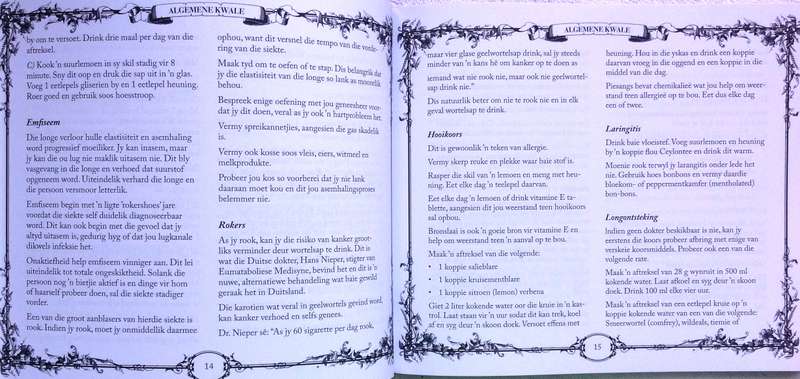 ALGEMENE KWALE
by om te versoet. Drink drie maal per dag van die
aftreksel.
C) Kook 'n suurlemoen in sy skil stadig vir 8
minute. Sny dit oop en druk die sap uit in 'n glas.
Voeg 1 eetlepels gliserien by en 1 eetlepel heuning.
Roer goed en gebruik soos hoesstroop.
Emfiseem
Die longe verloor hulle elastisiteit en asemhaling
word progressief moeiliker. Jy kan inasem, maar
jy kan die ou lug nie maklik uitasem nie. Dit bly
vasgevang in die longe en verhoed dat suurstof
opgeneem word. Uiteindelik verhard die longe en
die persoon versmoor letterlik.
Emfiseem begin met 'n ligte 'rokershoes' jare
voordat die siekte self duidelik diagnoseerbaar
word. Dit kan ook begin met die gevoel dat jy
altyd uitasem is, gedurig hyg of dat jou lugkanale
dikwels infeksie het.
Onaktiefheid help emfiseem vinniger aan. Dit lei
uiteindelik tot totale ongeskiktheid. Solank die
persoon nog 'n bietjie aktief is en dinge vir hom
of haarself probeer doen, sal die siekte stadiger
vorder.
Een van die groot aanblasers van hierdie siekte is
rook. Indien jy rook, moet jy onmiddellik daarmee
ophou, want dit versnel die tempo van die vorde-
ring van die siekte.
Maak tyd om te oefen of te stap. Dis belangrik dat
jy die elastisiteit van die longe so lank as moontlik
behou.
Bespreek enige oefening met jou geneesheer voor-
dat jy dit doen, veral as jy ook 'n hartprobleem het.
Vermy spreikannetjies, aangesien die gas skadelik
is.
Vermy ook kosse soos vleis, eiers, witmeel en
melkprodukte.
Probeer jou kos so voorberei dat jy nie lank
daaraan moet kou en dit jou asemhalingsproses
belemmer nie.
Rokers
As jy rook, kan jy die risiko van kanker groot-
liks verminder deur wortelsap te drink. Dit is
wat die Duitse dokter, Hans Nieper, stigter van
Eumataboliese Medisyne, bevind het en dit is 'n
nuwe, alternatiewe behandeling wat baie geseënd
geraak het in Duitsland.
Die karotien wat veral in geelwortels gevind word,
kan kanker verhoed en selfs genees.
Dr. Nieper sê: "As jy 60 sigarette per dag rook,
14
ALGEMENE KWALE
maar vier glase geelwortelsap drink, sal jy steeds
minder van 'n kans hê om kanker op te doen as
iemand wat nie rook nie, maar ook nie geelwortel-
sap drink nie."
Dis natuurlik beter om nie te rook nie en in elk
geval wortelsap te drink.
Hooikoors
Dit is gewoonlik 'n teken van allergie.
Vermy skerp reuke en plekke waar baie stof is.
Rasper die skil van 'n lemoen en meng met heu-
ning. Eet elke dag 'n teelepel daarvan.
Eet elke dag 'n lemoen of drink vitamine E ta-
blette, aangesien dit jou weerstand teen hooikoors
sal opbou.
Bronslaai is ook 'n goeie bron vir vitamine E en
help om weerstand teen 'n aanval op te bou.
Maak 'n aftreksel van die volgende:
• 1 koppie salieblare
• 1 koppie kruisementblare
• 1 koppie sitroen (lemon) verbena
Giet 2 liter kokende water oor die kruie in 'n kas-
trol. Laat staan vir 'n uur sodat dit kan trek, koel
af en syg deur 'n skoon doek. Versoet effens met
heuning. Hou in die yskas en drink een koppie
daarvan vroeg in die oggend en een koppie in die
middel van die dag.
Piesangs bevat chemikalieë wat jou help om weer-
stand teen allergieë op te bou. Eet dus elke dag
een of twee.
Laringitis
Drink baie vloeistof. Voeg suurlemoen en heuning
by 'n koppie flou Ceylontee en drink dit warm.
Moenie rook terwyl jy larangitis onder lede het
nie. Gebruik hoes bonbons en vermy daardie
bloekom- of peppermentkamfer (mentholated)
bon-bons.
Longontsteking
Indien geen dokter beskikbaar is nie, kan jy
eerstens die koors probeer afbring met enige van
verskeie koorsmiddels. Probeer ook een van die
volgende rate.
Maak 'n aftreksel van 28 g wynruit in 500 ml
kokende water. Laat afkoel en syg deur 'n skoon
doek. Drink 100 ml elke vier uur.
Maak 'n aftreksel van een eetlepel kruie op 'n
koppie kokende water van een van die volgende:
Smeerwortel (comfrey), wildeals, tiemie of
15